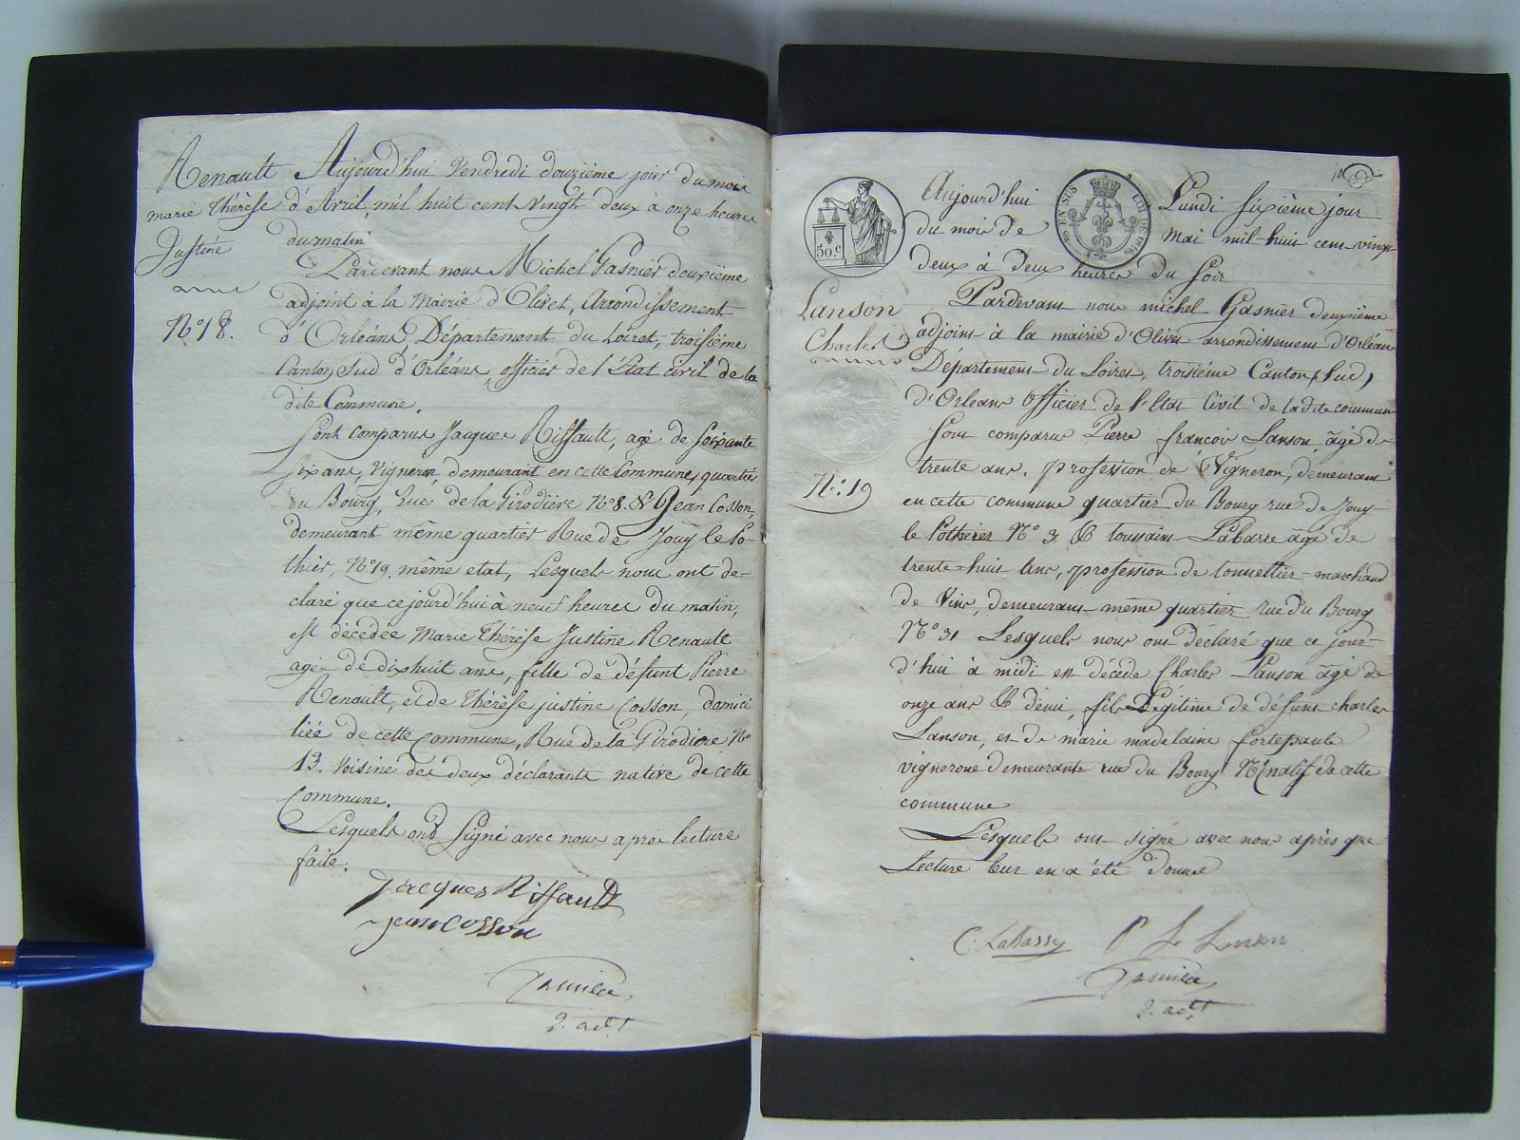 Renault
marie thérèse
Justine
N.° 18.
Aujourd'hui Vendredi douzième jour du mois
d'Avril, mil huit cent vingt deux a onze heures
du matin
Pardevant nous Michel Gasnier deuxième
adjoint à la Mairie d'Olivet, Arrondissement
d'Orléans, Département du Loiret, troisième
Canton Sud d'Orléans, officier de l'État civil de la
dite Commune.
Sont comparus Jacques Riffault, agé de soixante
six ans, vigneron, demeurant en cette Commune, quartier
du Bourg, rue de la Girodière N.° 8. & Jean Cosson,
demeurant même quartier Rue de Jouy le Po-
thier, N.° 19. même etat, Lesquels nous ont de-
claré que cejourd'hui à neuf heures du matin,
est décédée Marie Thérèse Justine Renault
agée de dixhuit ans, fille de défunt Pierre
Renault, et de Thérèse justine Cosson, domici
liée de cette Commune, Rue de la Girodiere N.°
13. Voisine des deux déclarants native de cette
Commune.
Lesquels ont signé avec nous apres lecture
faite.
jacques Riffault
jean cosson
2. adt
50.c
Lanson
Charles
N.°: 19
Aujourd'hui Lundi sixième jour
du mois de Mai mil-huit cent-vingt-
deux à deux heures du soir
Pardevant nous michel Gasnier deuxième
adjoint à la mairie d'Olivet arrondissement d'Orléans
Département du Loiret, troisième Canton, Sud,
d'Orleans Officier de l'Etat Civil de ladite commune
sont comparus Pierre françois Lanson, âgé de
trente ans. profession de Vigneron, demeurant
en cette commune quartier du Bourg rue de Jouy
le Pothier N.° 3 & toussaint Labarre agé de
trente=huit ans, profession de tonnellier-marchand
de Vins, demeurant-même quartier rue du Bourg
N.° 31 Lesquels nous ont déclaré que ce jour-
d'hui à midi est décédé Charles Lanson âgé de
onze ans & demi, fils Légitime de défunt charles
Lanson, et de marie madelaine
vignerone demeurante rue du Bourg natif de cette
commune
Lesquels ont signé avec nous après que
Lecture leur en a été donné
2. adt